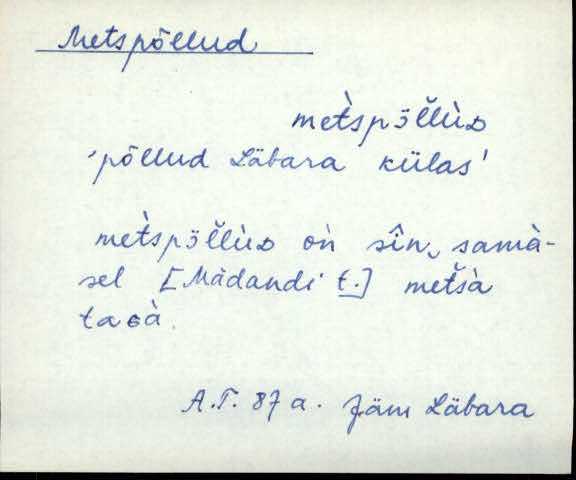 Metspõllud
met̀spɜ̈l̆lùᴅ
'põllud Läbara külas'
met̀spɜ̈l̆lùᴅ oǹ sîn, samà-
sel [Mädandi t.] met̆sà
taɢà.
A.T. 87 a. Jäm Läbara